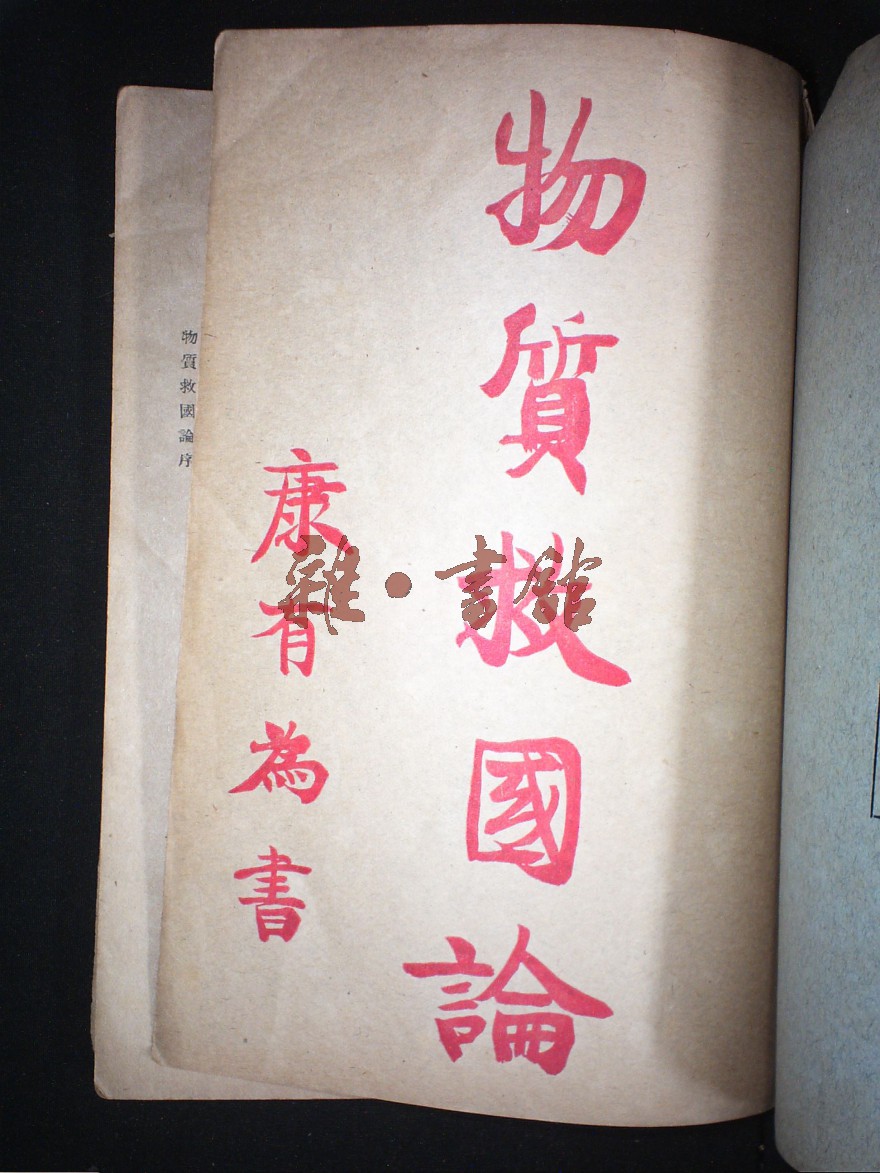 物質救國論
康有為書
物質救國論序
雜·書館